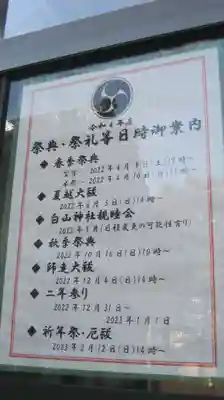 令和4年度
祭典・祭礼等日時御案内
◆ 春季祭典
2022年4月9日(土)
2022年4月10日(日)
◆ 夏越大祓
2022年6月5日(日)14時~
◆ 白山神社親睦会
◆ 秋季祭典
2022年10月16日(日)10時~
◆ 師走大祓
2022年12月4日(日)14時~
◆ 二年参り
2022年12月31日~
2023年1月1日
◆ 祈年祭・厄祓
2023年2月12日(日)14時~